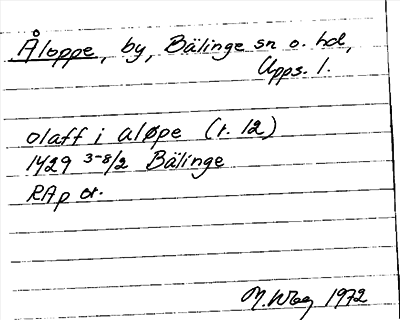 Åloppe, by, Bälinge sn o. hd,
Upps. l.
olaff i aløpe (r. 12)
1429 3-8/2 Bälinge
RAp or.
M. 1972